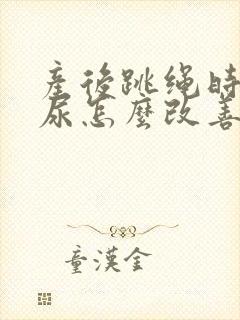 產後跳绳時
尿怎麼改善
童漢金